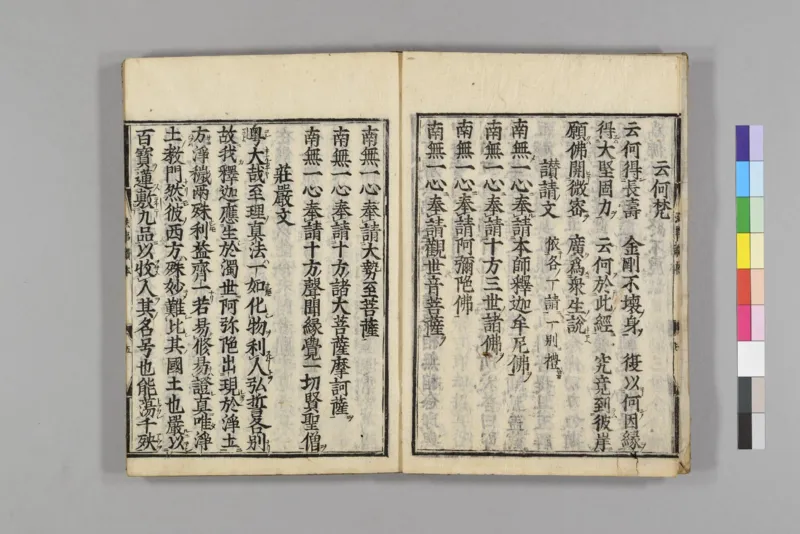 云何梵
云何得長壽　金剛不壞身　復以何因緣
得大堅固力　云何於此經　究竟到彼岸
願佛開微密　廣爲衆生說
讃請文
南無一心奉請本師釋迦牟尼佛
南無一心奉請十方三世諸佛
南無一心奉請阿彌陀佛
南無一心奉請觀世音菩薩
南無一心奉請大勢至菩薩
南無一心奉請十方諸大菩薩摩訶薩
南無一心奉請十方聲聞緣覺一切賢聖僧
莊嚴文
夫哉至理真法一如化物利人弘誓各別
故我釋迦應生於濁世阿弥陀出現於淨土
方淨穢兩殊利益齊一若易修易證真唯淨
土教門然彼西方殊妙難比其國土也嚴以
百寶蓮敷九品以收人其名号也能蕩千殃